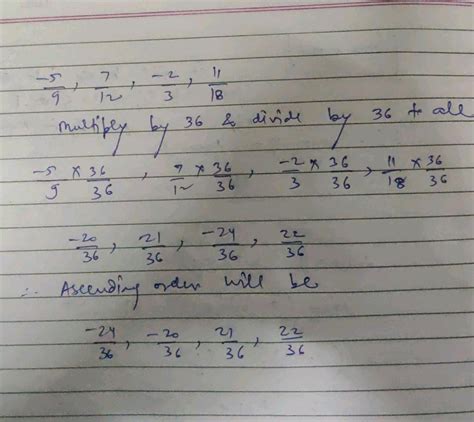 -5/9, 7/12, -2/3, 11/18
Multiply by 36 & divide by 36 to all
-5/9 × 36/36, 7/12 × 36/36, -2/3 × 36/36, 11/18 × 36/36
-20/36, -21/36, -24/36, 22/36
∴ Ascending order will be
-24/36, -20/36, 21/36, 22/36